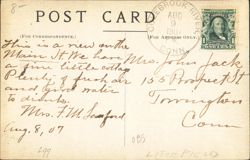 8-
POST CARD
COLEBROOK RIVER
AUG
9
CONN.
(FOR CORRESPONDENCE.)
(FOR ADDRESS ONLY.)
This is a view on the
Main St. We have
a fine little cottage
Plenty of fresh air
and good water
to drink.
Mrs. F. M.
Aug. 8, 07
Mrs. John Jack
155 Prospect St
Torrington
Conn